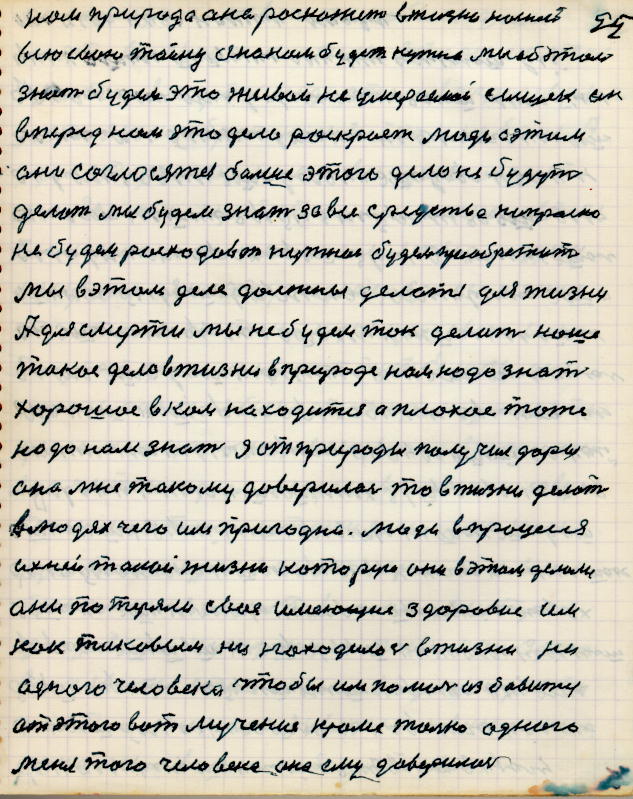 нам природа она роскажет в жизни нашей 55
всю свою тайну она нам будет нужна мы об этом
знат будем это живой не умераемой
вперед нам это дело роскроет люди с этим
они согласятся болше этого дело не будут
делат мы будем знат за все средства напрасно
не будем росходоват нужная будем приобретит
мы в этом деле должны делат для жизни
А для смерти мы не будем так делат наше
такое дело в жизни в природе нам надо знат
хорошое в ком находится а плохое тоже
надо нам знат я от природы получил дары
она мне такому доверилас то в жизни делат
в людях чего им пригодно. люди в процессе
ихней такой жизни которую они в этом делали
они потеряли свое имеющие здоровие им
как таковым не находилос в жизни ни
одного человека чтобы им помог избавитц
от этого вот мучение кроме толко одного
меня того человека она ему доверилас